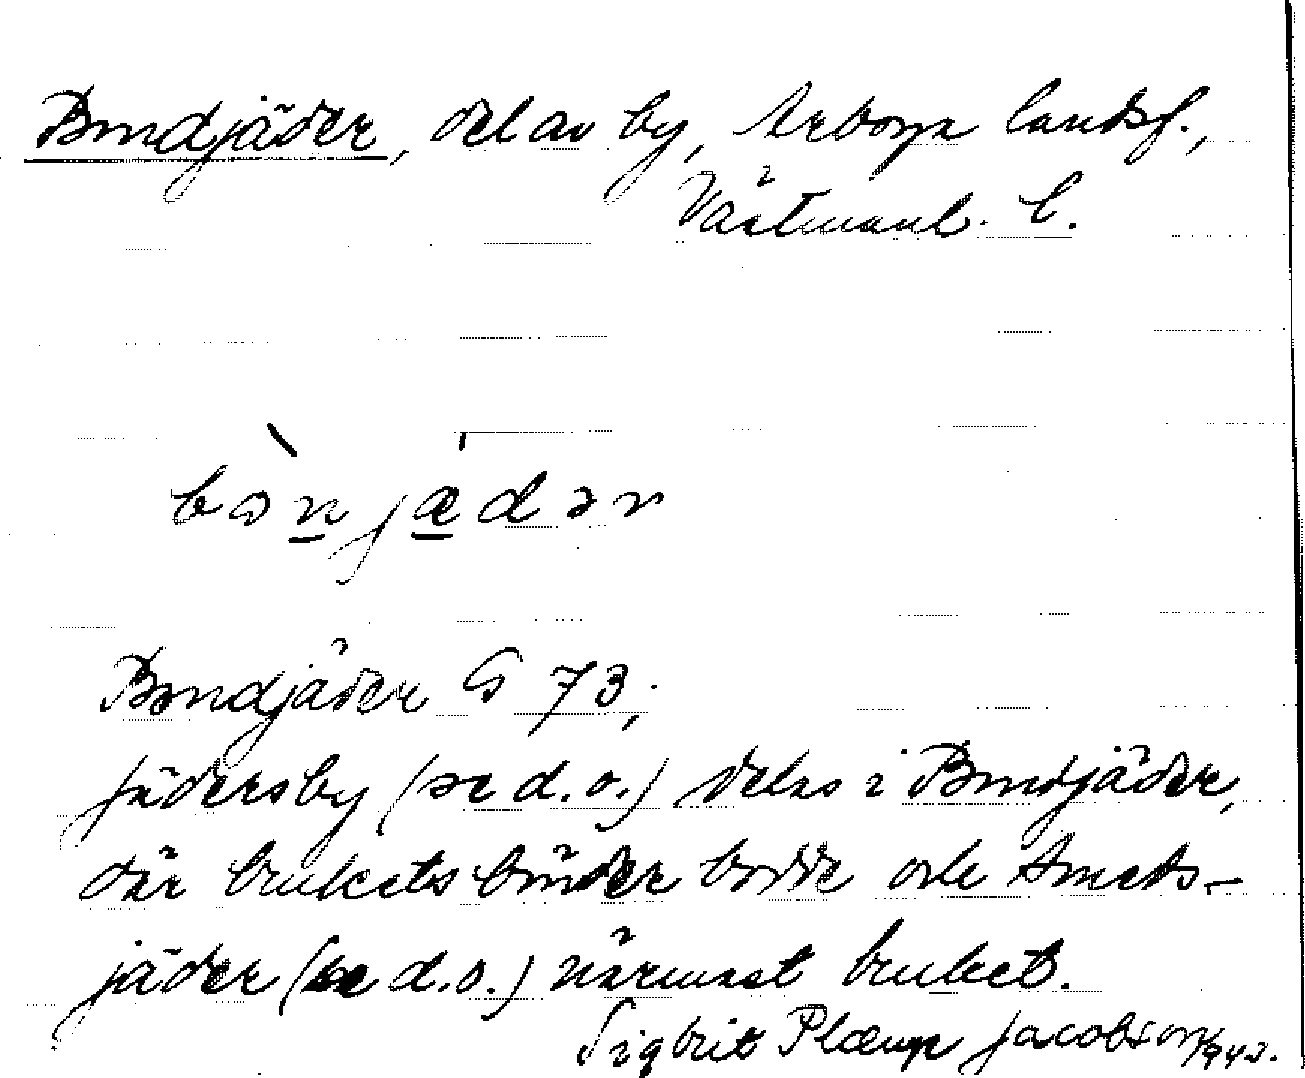 Bondjäder, del av by, Arboga landsf.,
Västmanl. l.
bònjædər
Bondjäder G 73;
Jädersby (se d.o.) delas i Bondjäder,
där brukets bönder bodde och Smeds-
jäder (se d.o.) närmast bruket.
Sigbrit Plænge Jacobson 1942.